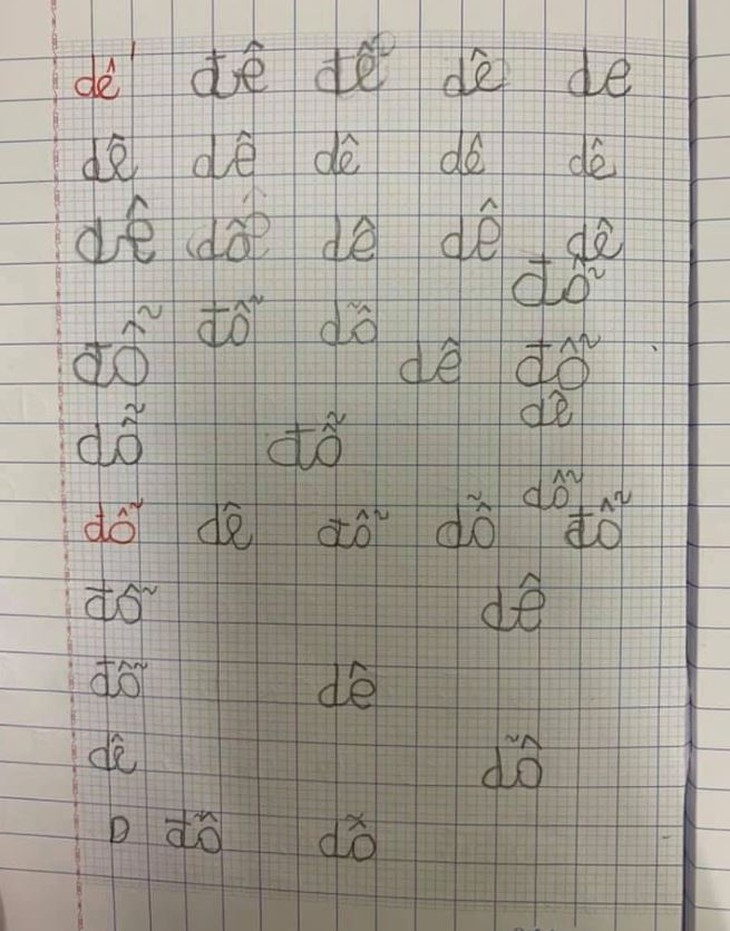 dê đê đễ dê de
dê dê dê dê dê
dê dỗ dê dê dê
đỗ
đỗ đỗ dỗ
dê đỗ
dê
dỗ đỗ
dỗ
dỗ dê đỗ dỗ đỗ
đỗ dê
đỗ dê
dê dỗ
D đỗ dỗ